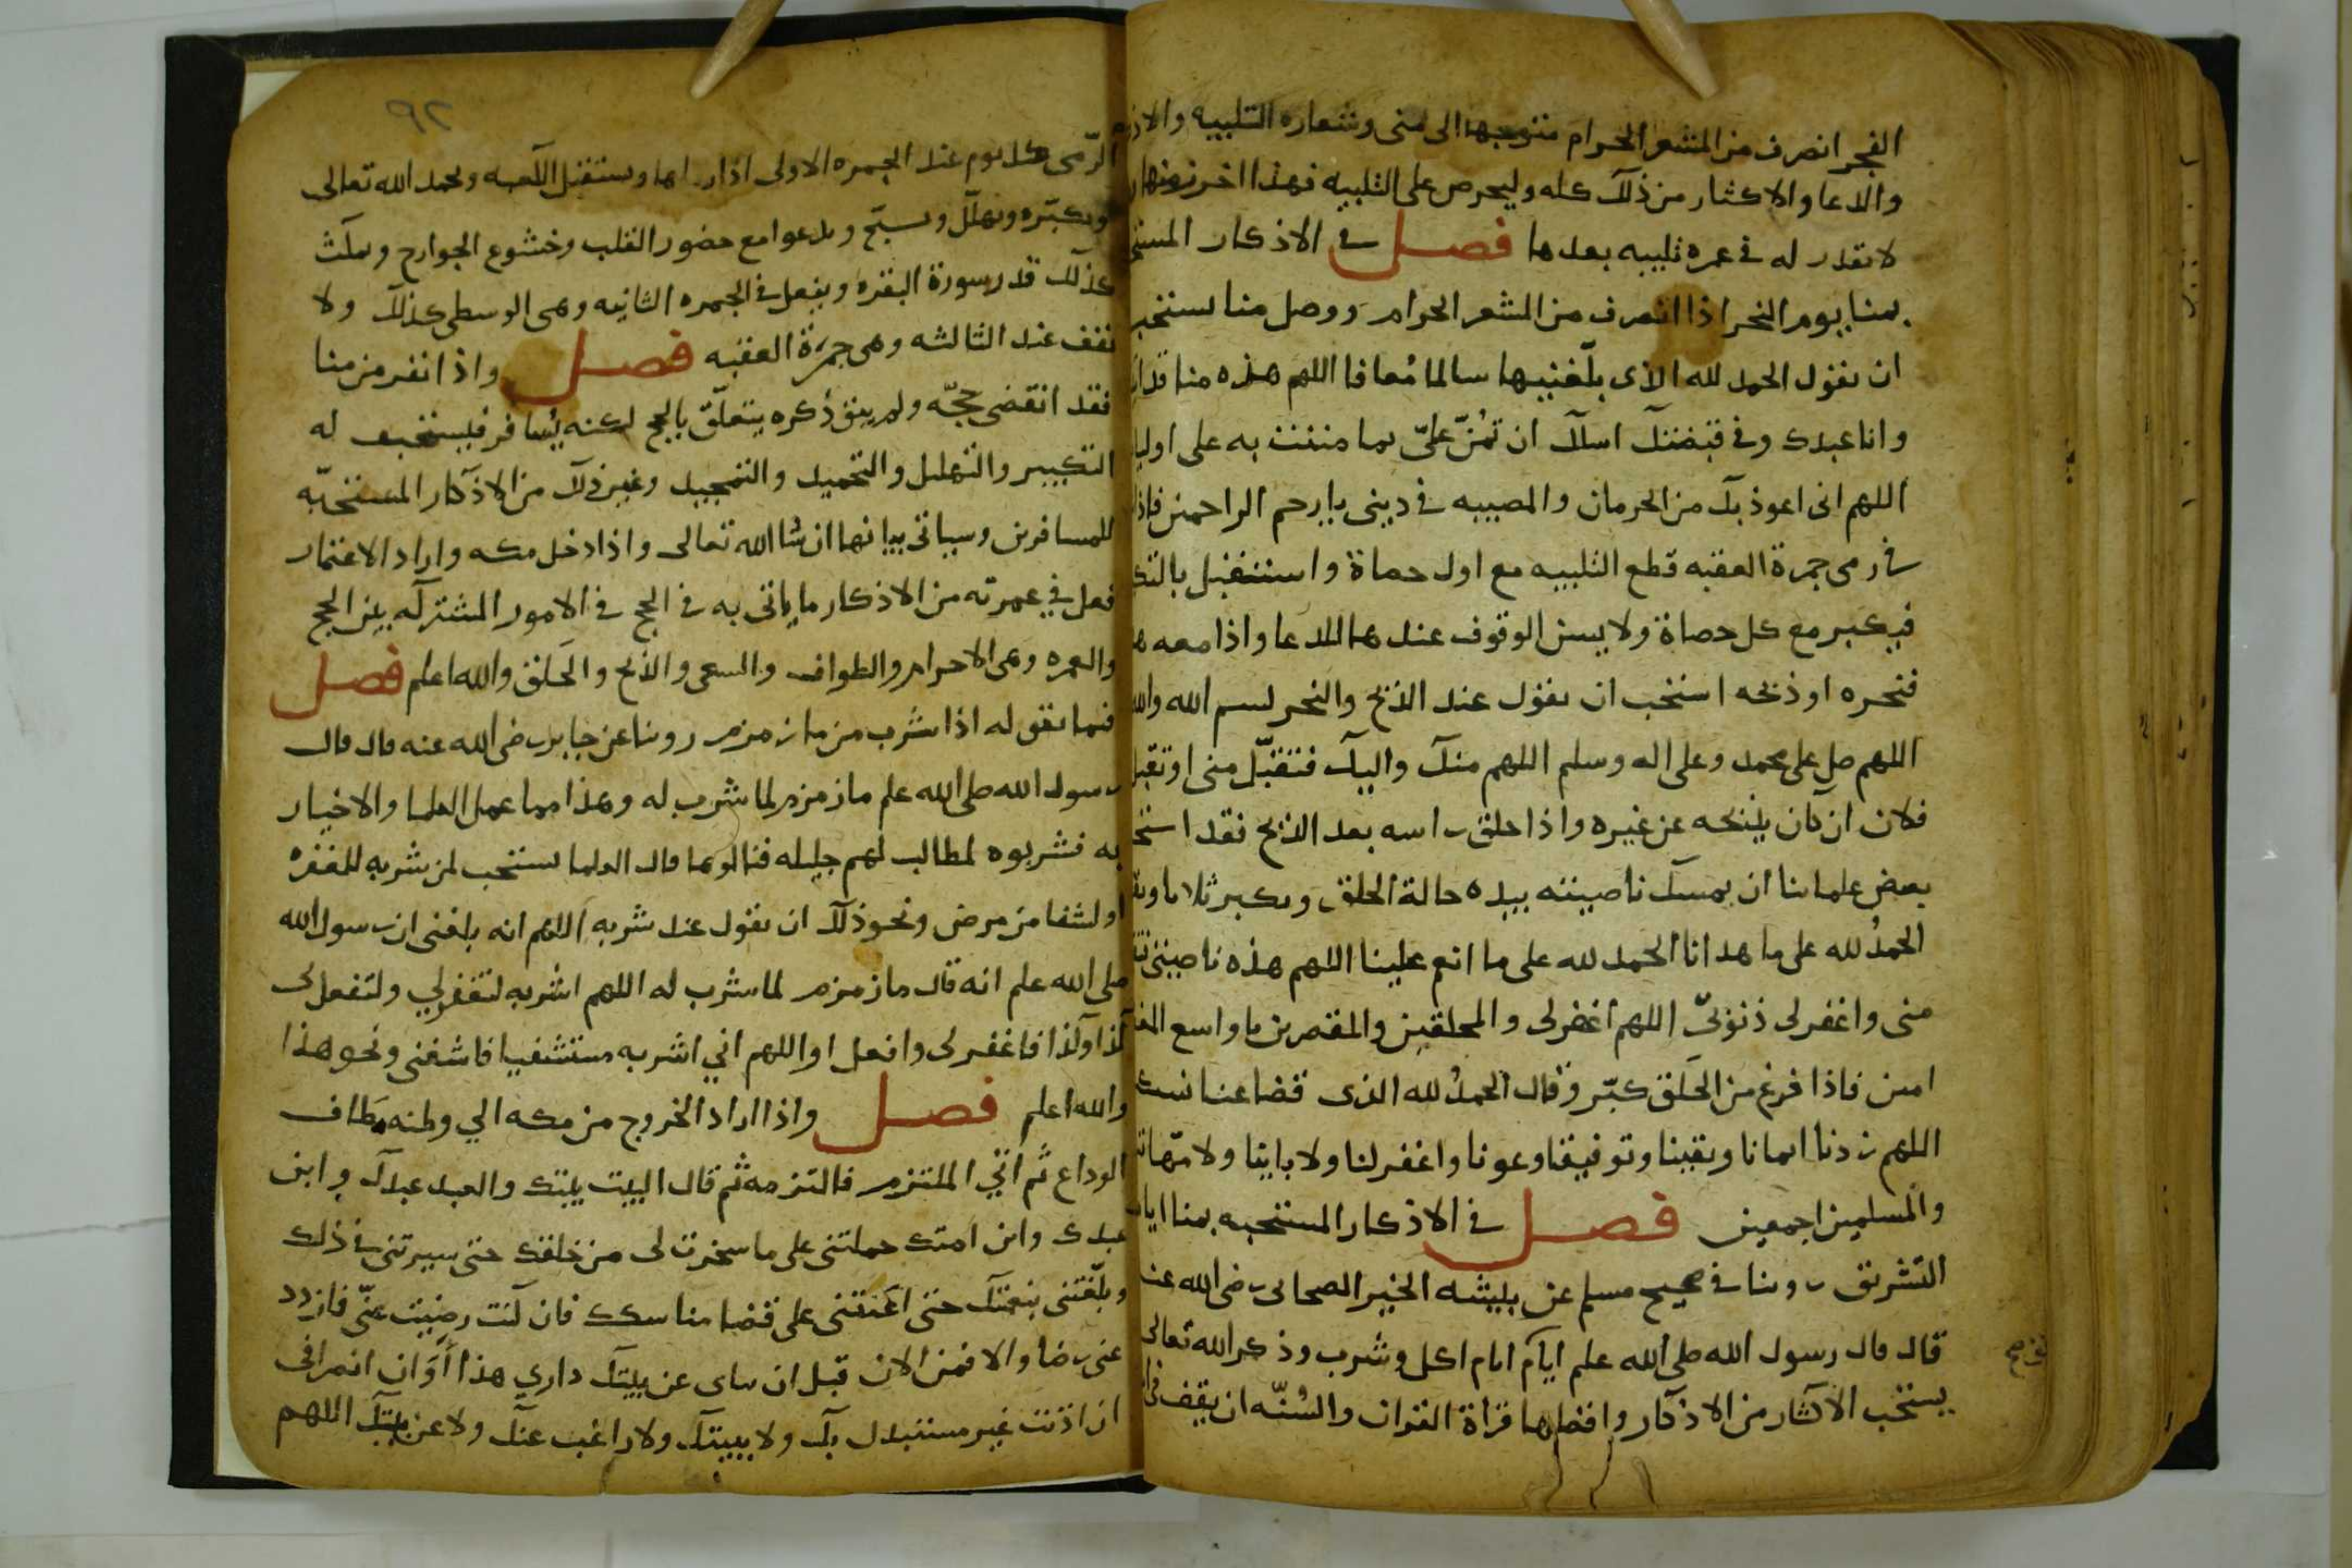 الفجر انصرف من المشعر الحرام متوجها الى منى وشعاره التلبيه والاذ
والدعا والاكثار من ذلك كله وليحرص على التلبيه فهذا اخر زمنها
لا يقدر له في عمره تلبيه بعدها فصل في الاذكار المستح
بمنا يوم النحر اذا انصرف من المشعر الحرام ووصل منا يستحب
ان يقول الحمد لله الذى بلغنيها سالما مُعافا اللهم هذه منا قد
وانا عبدك وفي قبضتك اسلك ان تمُنّ عليّ بما مننت به على اوليا
اللهم انى اعوذ بك من الحرمان والمصيبه في دينى يا ارحم الراحمين فاذا
في رمى جمرة العقبه قطع التلبيه مع اول حصاة واستقبل بالتك
فيكبر مع كل حصاة ولا يسن الوقوف عندها للدعا واذا معه ه
فنحره او ذبحه استحب ان يقول عند الذبح والنحر بسم الله والله
اللهم صل على محمد وعلى اله وسلم اللهم منك واليك فتقبّل منى او تقبل
فلان ان كان يذبحه عن غيره واذا حلق راسه بعد الذبح فقد استح
بعض علمائنا ان يمسك ناصيته بيده حالة الحلق ويكبر ثلاثا ويق
الحمدُ لله على ما هدانا الحمد لله على ما انعم علينا اللهم هذه ناصيتى
منى واغفر لى ذنوبىّ اللهم اغفر لى والمحلقين والمقصرين يا واسع المغ
امين فاذا فرغ من الحلق كبّر وقال الحمدُ لله الذى قضا عنا نسك
اللهم زدنا ايمانا ويقينا وتوفيقا وعونا واغفر لنا ولابائنا ولامّهاتنا
والمسلمين اجمعين فصل في الاذكار المستحبه بمنا ايام
التشريق روينا في صحيح مسلم عن بليشه الخير الصحابى رضى الله عنه
قال قال رسول الله صلى الله علم ايام ايام اكل وشرب وذكر الله تعالى
يستحب الاكثار من الاذكار وافضلها قراة القران والسُنّه ان يقف في
٩٢
الرّمى كل يوم عند الجمره الاولى اذا رماها ويستقبل الكعبه ويحمد الله تعالى
ويكبّره ويهلّل ويسبّح ويدعوا مع حضور القلب وخشوع الجوارح ويمكث
كذلك قدر سورة البقره ويفعل في الجمره الثانيه وهى الوسطى كذلك ولا
يقف عند الثالثه وهى جمرة العقبه فصل واذا نفر من منا
فقد انقضى حجّه ولم يبق ذكره يتعلّق بالحج لكنه يُسافر فيستحب له
التكبير والتهليل والتحميد والتمجيد وغير ذلك من الاذكار المستحبّه
للمسافرين وسياتى بيانها ان شا الله تعالى واذا دخل مكه واراد الاعتمار
فعل في عمرته من الاذكار ما ياتى به في الحج في الامور المشتركه بين الحج
والعمره وهى الاحرام والطواف والسعى والذبح والحلق والله اعلم فصل
فيما يقوله اذا شرب من ما زمزم روينا عن جابر رضى الله عنه قال قال
رسول الله صلى الله علم ما زمزم لما شرب له وهذا مما عمل العلما والاخيار
به فشربوه لمطالب لهم جليله فنالوها قال العلما يستحب لمن شربه للمغفره
او لشفا من مرض ونحو ذلك ان يقول عند شربه اللهم انه بلغنى ان رسول الله
صلى الله علم انه قال ما زمزم لما شرب له اللهم اشربه لتغفر لي ولتفعل لى
كذا وكذا فاغفر لى وافعل او اللهم اني اشربه مستشفيا فاشفنى ونحو هذا
والله اعلم فصل واذا اراد الخروج من مكه الي وطنه طاف
الوداع ثم اتي الملتزم فالتزمه ثم قال البيت بيتك والعبد عبدك وابن
عبدك وابن امتك حملتنى على ما سخرت لى من خلقك حتى سيرتنى في ذلك
وبلّغتنى بنعمتك حتى اعَنتنى على قضا مناسكك فان كنت رضيت عنّى فازدد
عنى رضا والا فمن الان قبل ان يناى عن بيتك داري هذا أَوَان انصرافى
ان اذنت غير مستبدل بك ولا ببيتك ولا راغب عنك ولا عن بيتك اللهم